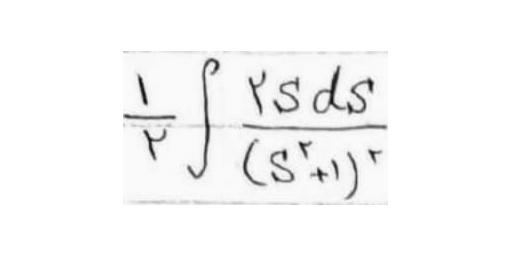 \frac{۱}{۲} \int \frac{۲s ds}{(s^۲+۱)^۲}